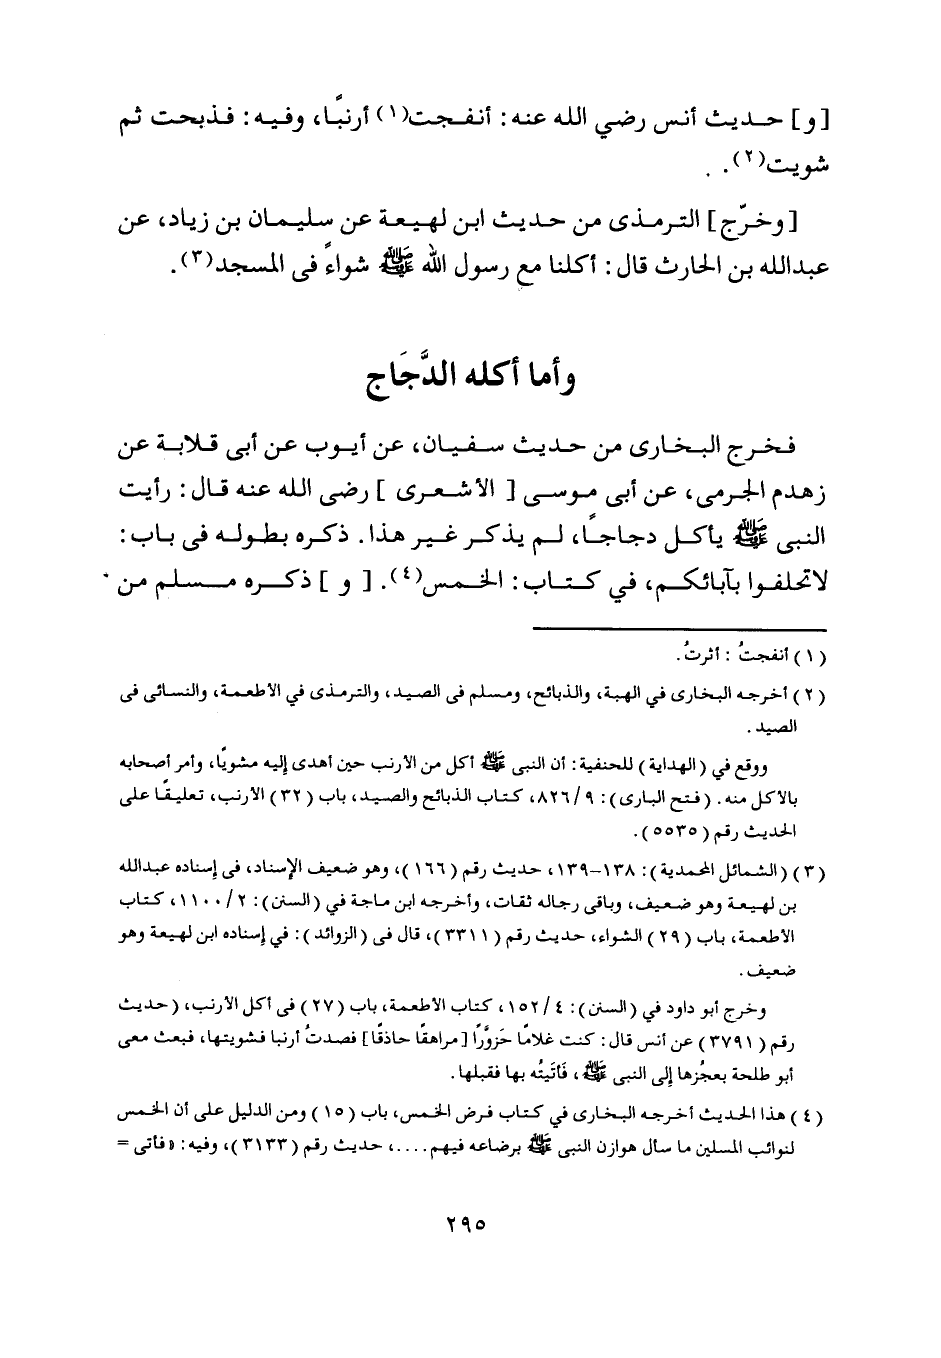 [و] حديث أنس رضي الله عنه: أنفجت(١) أرنبًا، وفيه: فذبحت ثم
شويت(٢).
[وخرّج] الترمذى من حديث ابن لهيعة عن سليمان بن زياد، عن
عبدالله بن الحارث قال: أكلنا مع رسول الله ﷺ شواءً فى المسجد(٣).
وأما أكله الدَّجَاج
فخرج البخارى من حديث سفيان، عن أيوب عن أبى قلابة عن
زهدم الجرمى، عن أبى موسى [الأشعرى] رضى الله عنه قال: رأيت
النبى ﷺ يأكل دجاجًا، لم يذكر غير هذا. ذكره بطوله فى باب:
لاتحلفوا بآبائكم، في كتاب: الخمس(٤). [و] ذكره مسلم من
(١) أنفجتُ: أثرتُ.
(٢) أخرجه البخارى في الهبة، والذبائح، ومسلم فى الصيد، والترمذى في الأطعمة، والنسائى فى
الصيد.
ووقع في (الهداية) للحنفية: أن النبى ﷺ أكل من الأرنب حين أهدى إليه مشويًا، وأمر أصحابه
بالأكل منه. (فتح البارى): ٩/٨٢٦، كتاب الذبائح والصيد، باب (٣٢) الأرنب، تعليقًا على
الحديث رقم (٥٥٣٥).
(٣) (الشمائل المحمدية): ١٣٨-١٣٩، حديث رقم (١٦٦)، وهو ضعيف الإسناد، فى إسناده عبدالله
بن لهيعة وهو ضعيف، وباقى رجاله ثقات، وأخرجه ابن ماجة في (السنن): ٢/١١٠٠، كتاب
الأطعمة، باب (٢٩) الشواء، حديث رقم (٣٣١١)، قال فى (الزوائد): في إسناده ابن لهيعة وهو
ضعيف.
وخرج أبو داود في (السنن): ٤/١٥٢، كتاب الأطعمة، باب (٢٧) فى أكل الأرنب، (حديث
رقم (٣٧٩١) عن أنس قال: كنت غلامًا حَزَوَّرًا [مراهقًا حاذقًا] فصدتُ أرنبا فشويتها، فبعث معى
أبو طلحة بعجُزها إلى النبى ﷺ، فَأتَيتُه بها فقبلها.
(٤) هذا الحديث أخرجه البخارى في كتاب فرض الخمس، باب (١٥) ومن الدليل على أن الخمس
لنوائب المسلين ما سأل هوازن النبى ﷺ برضاعه فيهم....، حديث رقم (٣١٣٣)، وفيه: «فأتى =
٢٩٥